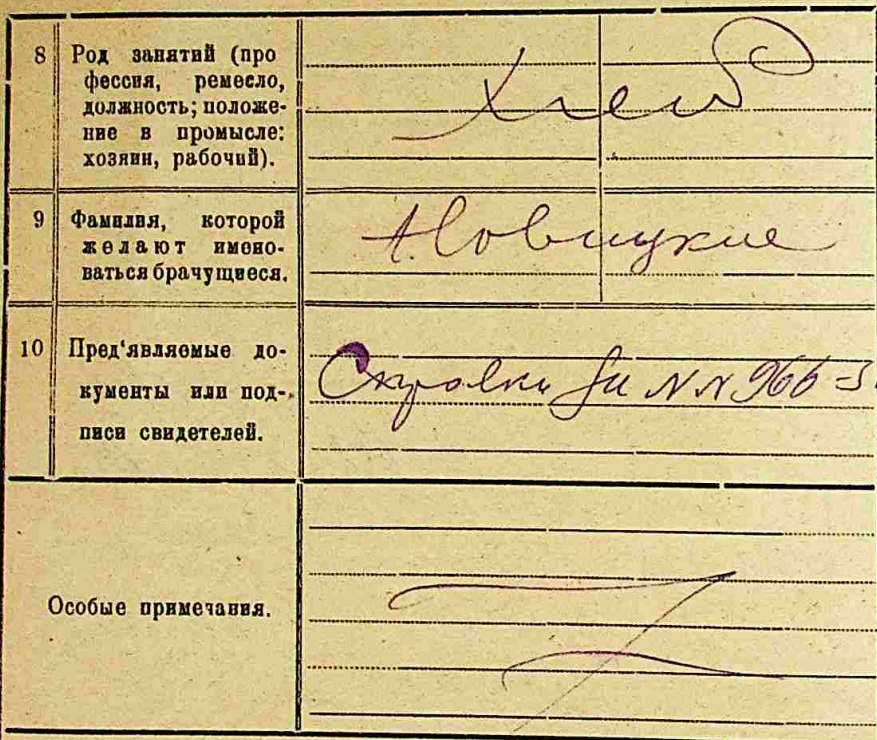 8 Род занятий (про
фессия, ремесло,
должность; положе-
ние в промысле:
хозяин, рабочий).
Хлеб
9 Фамилия, которой
желают имено-
ваться брачущиеся.
Новицкие
10 Пред'являемые до-
кументы или под-
писи свидетелей.
Справки за NN 966-
Особые примечания.